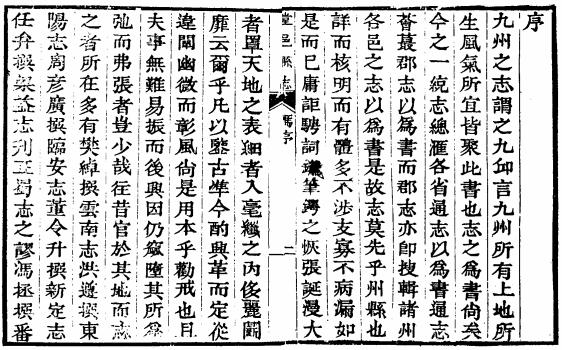 序
九州之志謂之九丘言九州所有土地所
生風氣所宜皆聚此書也志之爲書尙矣
今之一統志總滙各省通志以爲書通志
薈蕞郡志以爲書而郡志亦卽搜輯諸州
各邑之志以爲書是故志莫先乎州縣也
詳而核明而有體多不涉支寡不病漏如
是而已庸詎騁詞筆鍔之恢張誕漫大
堂邑縣志
馮序
二
者罩天地之表細者入毫纖之內侈麗閎
靡云爾乎凡以鑒古準今酌興革而定從
違闡幽微而彰風尙是用本乎勸戒也且
夫事無難易振而後興因仍窳墮其所爲
弛而弗張者豈少哉徃昔官於其地而志
之者所在多有樊綽撰雲南志洪遵撰東
陽志周彥廣撰臨安志董令升撰新定志
任弁撰梁益志刋正蜀志之謬馮拯撰番